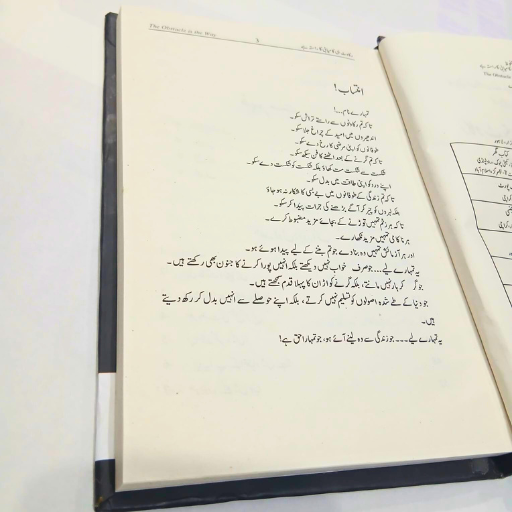 The Obstacle is the Way
انتساب!
تمہارے نام...!
تاکہ تم رکاوٹوں سے راستے تراش سکو۔
اندھیروں میں امید کے چراغ جلا سکو۔
طوفانوں کو اپنی مرضی کا رخ دے سکو۔
تاکہ تم گرنے کے بعد اٹھنے کا فن سیکھ سکو۔
شکست سے شکست مت کھاؤ بلکہ شکست کو شکست دے سکو۔
اپنے درد کو اپنی طاقت میں بدل سکو۔
تاکہ تم زندگی کے طوفانوں میں بے بسی کا شکار نہ ہو جاؤ
بلکہ لہروں کو چیر کر آگے بڑھنے کی جرات پیدا کر سکو۔
تاکہ ہر زخم تمہیں توڑنے کے بجائے مزید مضبوط کرے۔
ہر ناکامی تمہیں مزید نکھارے۔
اور ہر آزمائش تمہیں وہ بنا دے جو تم بننے کے لیے پیدا ہوئے ہو۔
یہ تمہارے لیے... جو صرف خواب نہیں دیکھتے بلکہ انہیں پورا کرنے کا جنون بھی رکھتے ہیں۔
جو گر کر ہار نہیں مانتے، بلکہ گرنے کو اڑان کا پہلا قدم سمجھتے ہیں۔
جو دنیا کے طے شدہ اصولوں کو تسلیم نہیں کرتے، بلکہ اپنے حوصلے سے انہیں بدل کر رکھ دیتے
ہیں۔
یہ تمہارے لیے... جو زندگی سے وہ لینے آئے ہو، جو تمہارا حق ہے!
The Obsta